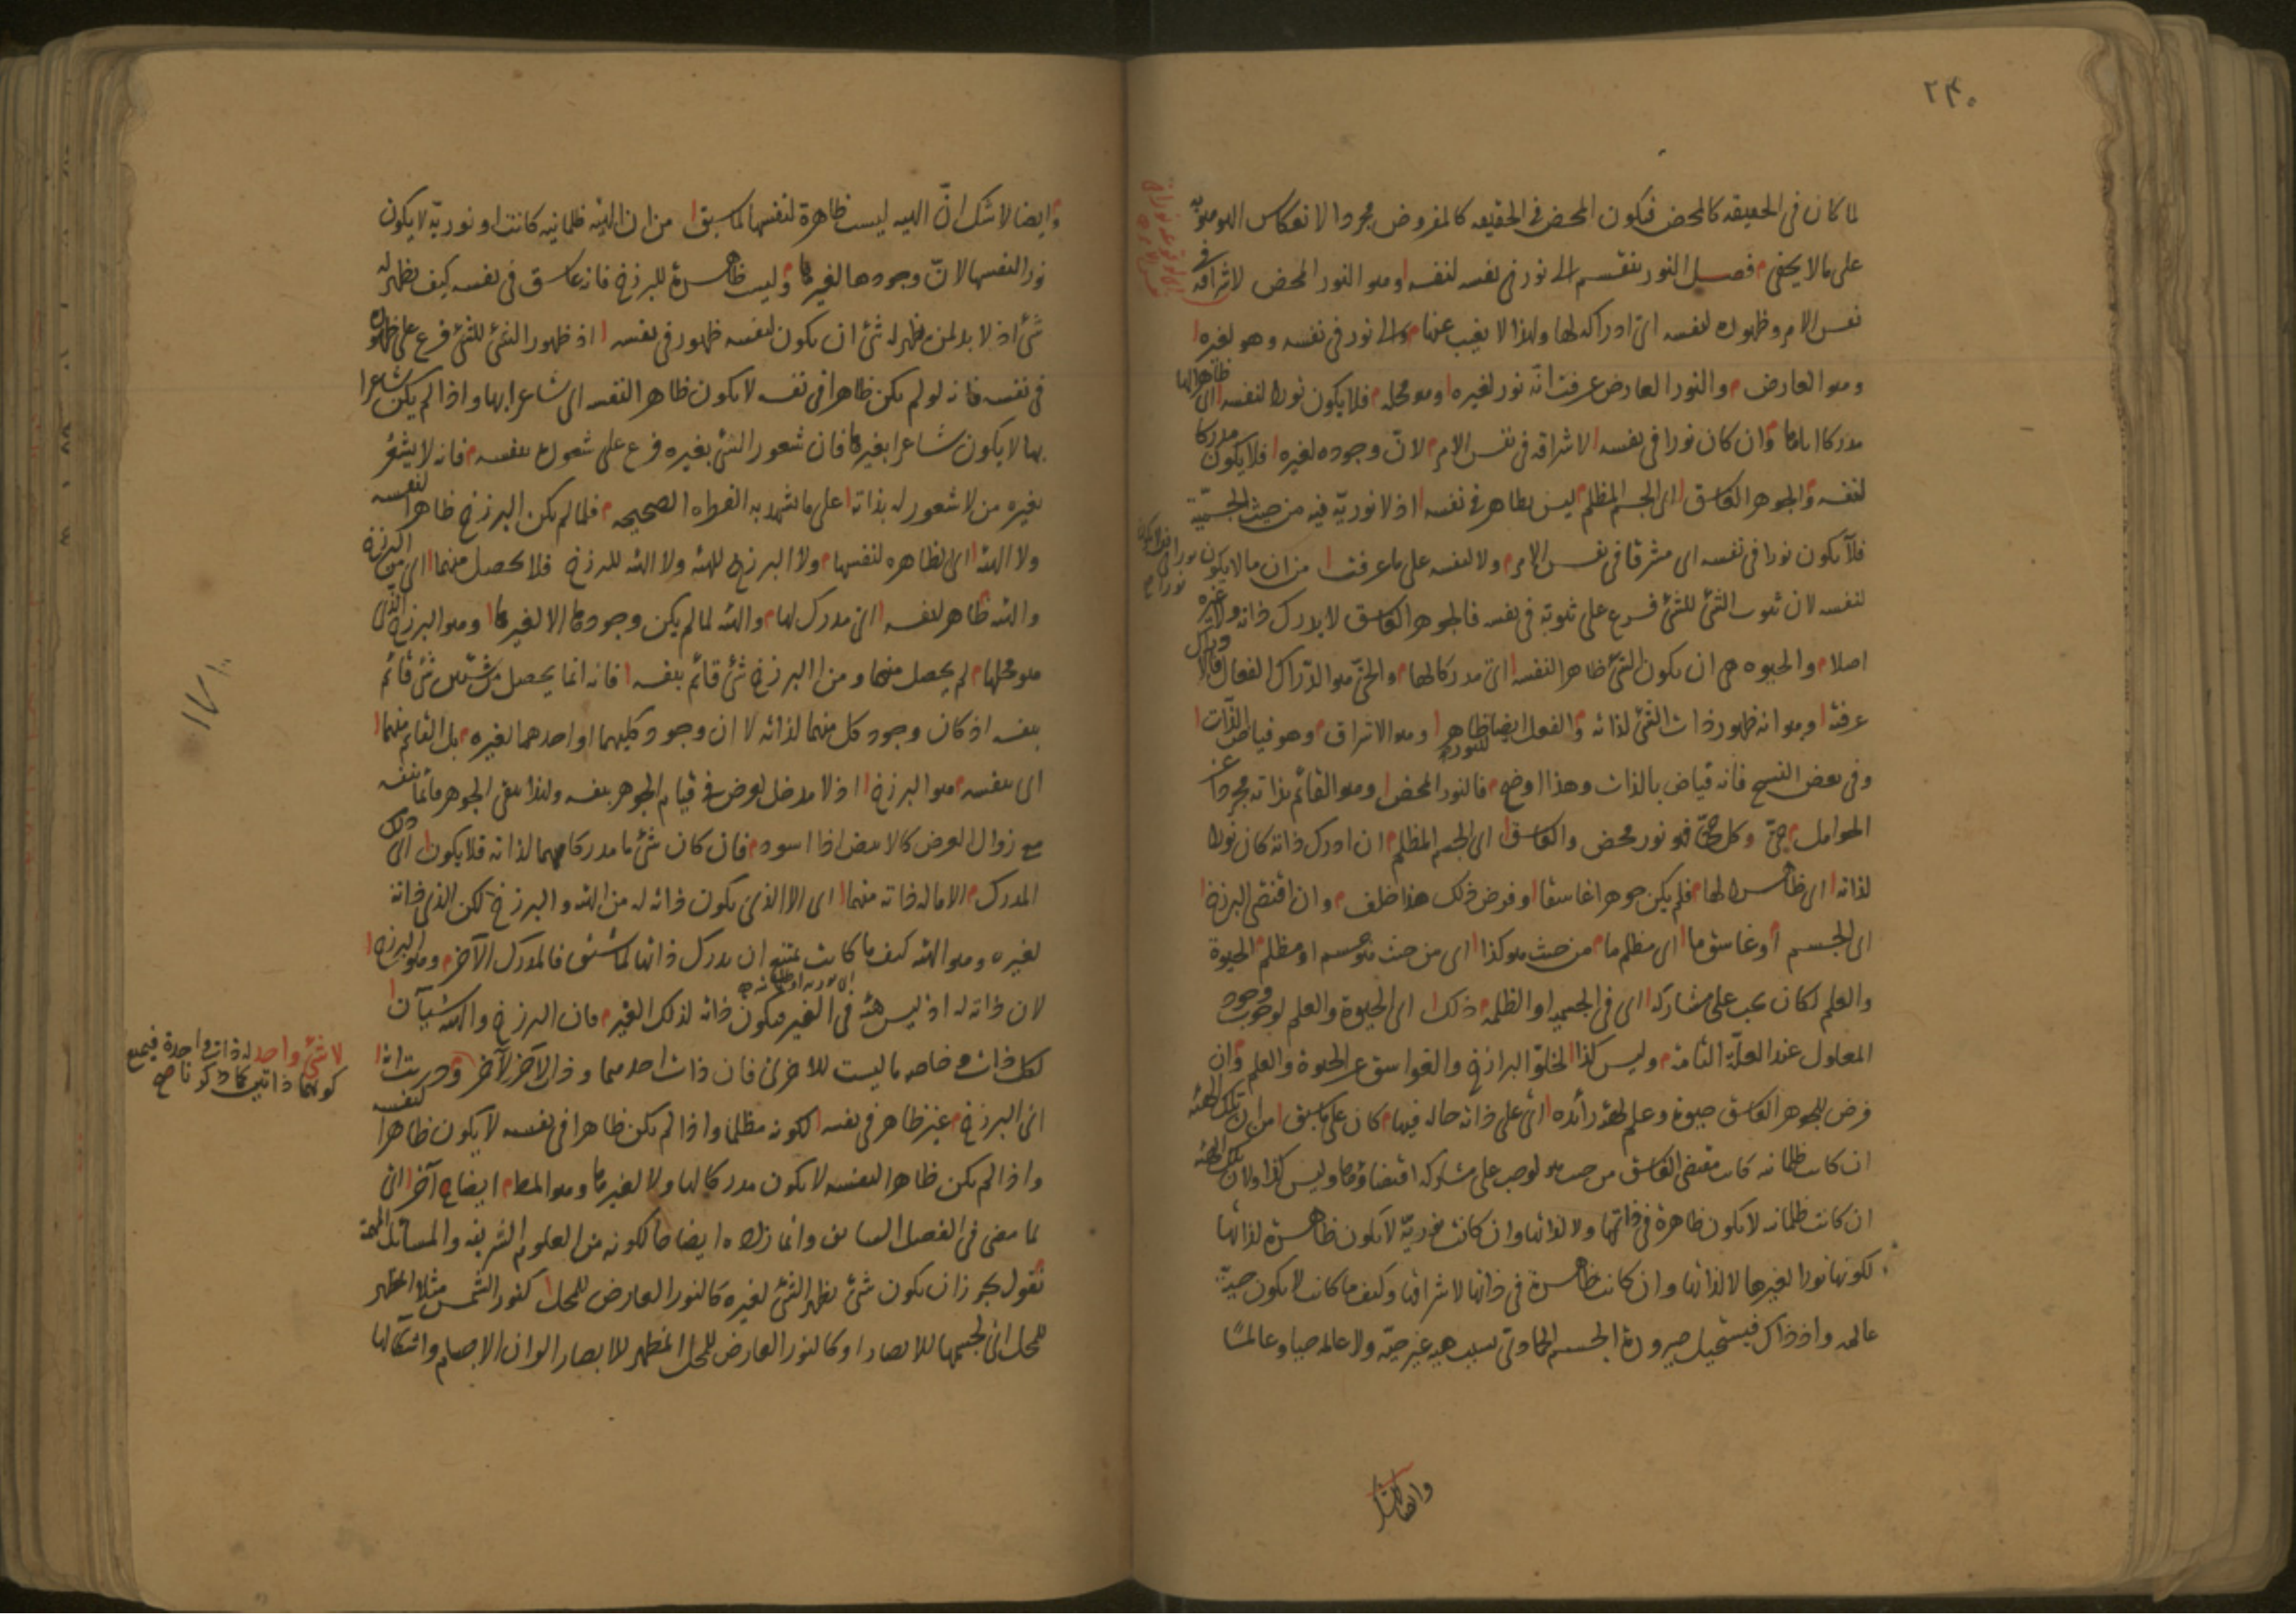 ٢٤٠
لما كان فى الحقيقه كالمحض فيكون المحض فى الحقيقه كالمفروض مجردا لانعكاس
على ما لا يخفى فصل النور ينقسم الى نور فى نفسه لنفسه وهو النور المحض لاشراقه فى
نفس الامر وظهوره لنفسه اى ادراكه لها ولهذا لا يغيب عنها والى نور فى نفسه وهو لغيره
وهو العارض والنور العارض عرفت انّه نور لغيره وهو محله فلا يكون نورا لنفسه اى ظاهرا لها
مدركا اياها وان كان نورا فى نفسه لاشراقه فى نفس الامر لانّ وجوده لغيره فلا يكون مدركا
لنفسه والجوهر الغاسق اى الجسم المظلم ليس بظاهر فى نفسه اذ لا نوريّة فيه من حيث الجسميّة
فلا يكون نورا فى نفسه اى مشرقا فى نفس الامر ولا لنفسه على ما عرفت من ان ما لا يكون نورا فى
لنفسه لان ثبوت الشئ للشئ فرع على ثبوته فى نفسه فالجوهر الغاسق لا يدرك ذاته ولا غيره
اصلا والحيوه هى ان يكون الشئ ظاهرا لنفسه اى مدركا لها والحىّ هو الدّراك الفعال
عرفته وهو انه ظهور ذات الشئ لذاته والفعل ايضا ظاهر للنور وهو الاشراق وهو فياض بالذات
وفى بعض النسخ فانه فياض بالذات وهذا اوضح فالنور المحض وهو القائم بذاته مجردا عن
الحوامل حىّ وكل حىّ فهو نور محض والغاسق اى الجسم المظلم ان ادرك ذاته كان نورا
لذاته اى ظاهرا لها فلم يكن جوهرا غاسقا وفرض ذلك هذا خلف وان اقتضى البرزخ
اى الجسم او غاسق ما اى مظلم ما من حيث هو كذا اى من حيث هو جسم او مظلم الحيوة
والعلم لكان يجب على مشاركه اى فى الجسميه او الظلمه ذلك اى الحيوة والعلم لوجوب وجود
المعلول عند العلّة التامة وليس كذا لخلوّ البرازخ والغواسق عن الحيوة والعلم وان
فرض للجوهر الغاسق حيوة وعلم لهيئة زائده اى على ذاته حاله فيها كان على ما سبق من ان تلك الهيئة
ان كانت ظلمانيه كانت مقتضى الغاسق من حيث هو لوجب على مشاركه اقتضاؤها وليس كذا ولان تلك الهيئة
ان كانت ظلمانيه لا يكون ظاهرة فى ذاتها ولا لذاتها وان كانت نوريّة لا يكون ظاهرة لذاتها
لكونها نورا لغيرها لا لذاتها وان كانت ظاهرة فى ذاتها لاشراقها وكيف ما كانت لا يكون حيّة
عالمه واذ ذاك فيستحيل صيرورة الجسم الجمادى بسبب هيه غير حيّه ولا عالمه حيا وعالما
وايضا لا شك
وايضا لا شك انّ الهيه ليست ظاهرة لنفسها لما سبق من ان الهيئه ظلمانيه كانت او نوريّة لا يكون
نورا لنفسها لانّ وجودها لغيرها وليست ظاهرة للبرزخ فانه غاسق فى نفسه كيف يظهر له
شئ اذ لا بد لمن يظهر له شئ ان يكون لنفسه ظهور فى نفسه اذ ظهور الشئ للشئ فرع على ظهوره
فى نفسه فانه لو لم يكن ظاهرا فى نفسه لا يكون ظاهرا لنفسه اى شاعرا بها واذا لم يكن شاعرا
بها لا يكون شاعرا بغيرها فان شعور الشئ بغيره فرع على شعوره بنفسه فانه لا يشعر
بغيره من لا شعور له بذاته على ما يشهد به الفطره الصحيحه فلما لم يكن البرزخ ظاهرا لنفسه
ولا الهيئه اى ظاهره لنفسها ولا البرزخ للهيئه ولا الهيئه للبرزخ فلا يحصل منهما اى من البرزخ
والهيئه ظاهر لنفسه اى مدرك لها والهيئه لما لم يكن وجودها الا لغيرها وهو البرزخ الذى
هو محلها لم يحصل منها ومن البرزخ شئ قائم بنفسه فانه انما يحصل من شيئين شئ قائم
بنفسه اذ كان وجود كل منهما لذاته لا ان وجود كليهما او احدهما لغيره بل القائم منهما
اى بنفسه هو البرزخ اذ لا مدخل لعرض فى قيام الجوهر بنفسه ولهذا يبقى الجوهر قائما بنفسه
مع زوال العرض كالابيض اذا اسود فان كان شئ ما مدركا منهما لذاته فلا يكون اى ذلك
المدرك الا ما له ذاته منهما اى الا الذى يكون ذاته له من الهيئه والبرزخ لكن الذى ذاته
لغيره وهو الهيئه كيف ما كانت يمتنع ان يدرك ذاتها لما سبق فالمدرك الآخر وهو البرزخ
لان ذاته له اذ ليس هيئه فى الغير فيكون ذاته لذلك الغير فان البرزخ والهيئه شيآن
لكل ذات وخاصه ما ليست للاخرى فان ذات احدهما وذات الآخر لآخر ودريت انه
اى البرزخ غير ظاهر فى نفسه لكونه مظلما واذا لم يكن ظاهرا فى نفسه لا يكون ظاهرا لنفسه
واذا لم يكن ظاهرا لنفسه لا يكون مدركا لها ولا لغيرها وهو المط ايضاح آخر اى
لما مضى فى الفصل السابق وانما زاده ايضاحا لكونه من العلوم الشريفه والمسائل المهمة
نقول يجوز ان يكون شئ يظهر الشئ لغيره كالنور العارض للمحل كنور الشمس مثلا المظهر
للمحل اى لجسمها للابصار او كالنور العارض للمحل المظهر للابصار الوان الاجسام واشكالها
لا شئ واحد له ذات واحدة فيمتنع
١٧١